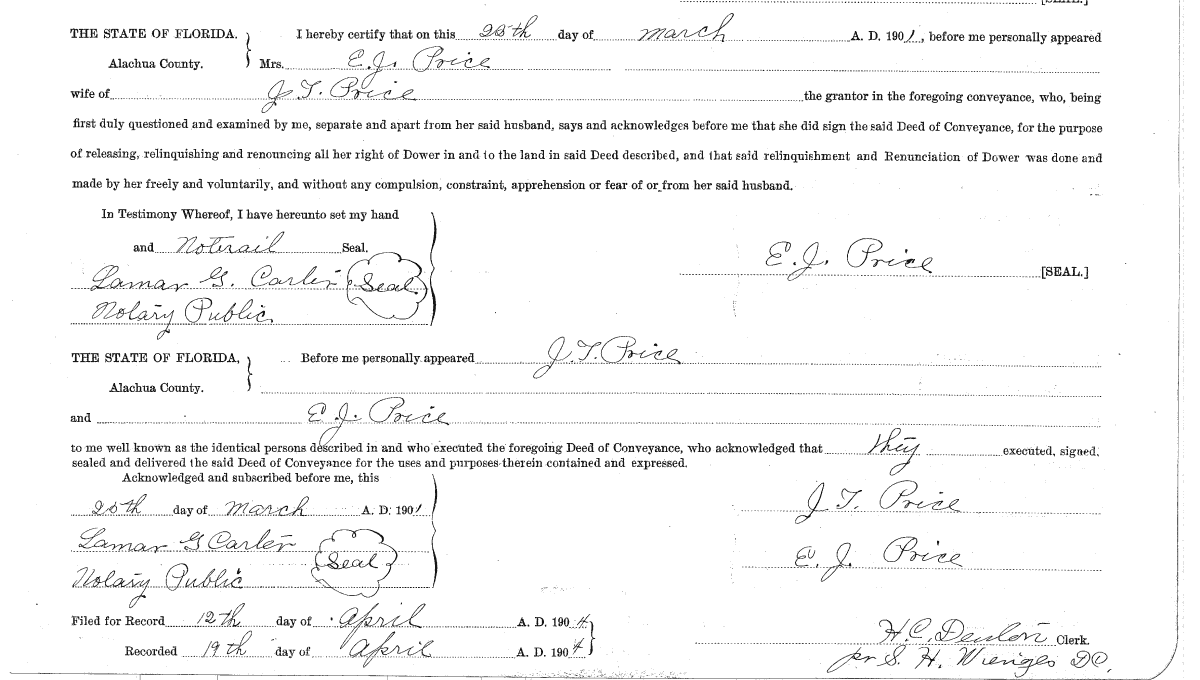 [SEAL.]
THE STATE OF FLORIDA. I hereby certify that on this 25th day of March A. D. 1901, before me personally appeared
Alachua County. Mrs. E. J. Price
wife of J. T. Price the grantor in the foregoing conveyance, who, being
first duly questioned and examined by me, separate and apart from her said husband, says and acknowledges before me that she did sign the said Deed of Conveyance, for the purpose
of releasing, relinquishing and renouncing all her right of Dower in and to the land in said Deed described, and that said relinquishment and Renunciation of Dower was done and
made by her freely and voluntarily, and without any compulsion, constraint, apprehension or fear of or from her said husband.
In Testimony Whereof, I have hereunto set my hand
and Noterail Seal.
E. J. Price [SEAL.]
Lamar G. Carter Seal
Notary Public
THE STATE OF FLORIDA, Before me personally appeared J. T. Price
Alachua County.
and E. J. Price
to me well known as the identical persons described in and who executed the foregoing Deed of Conveyance, who acknowledged that they executed, signed,
sealed and delivered the said Deed of Conveyance for the uses and purposes therein contained and expressed.
Acknowledged and subscribed before me, this
25th day of March A. D. 1901 J. T. Price
Lamar G Carter Seal E. J. Price
Notary Public
Filed for Record 12th day of April A. D. 1904
H. C. Denton Clerk.
Recorded 19th day of April A. D. 1904
pr S. H. Wienges D.C.